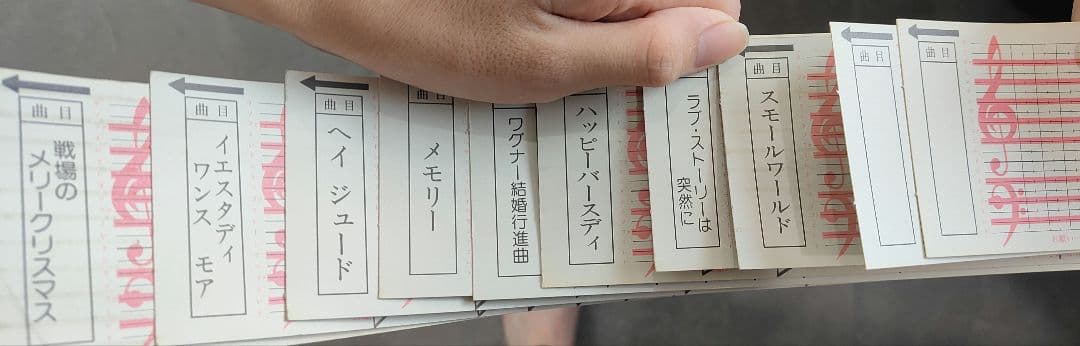 曲目
戦場の
メリークリスマス
曲目
イエスタディ
ワンス モア
曲目
ヘイ ジュード
曲目
メモリー
ワグナー結婚行進曲
ハッピーバースディ
ラブ・ストーリーは
突然に
曲目
スモールワールド
曲目
曲目